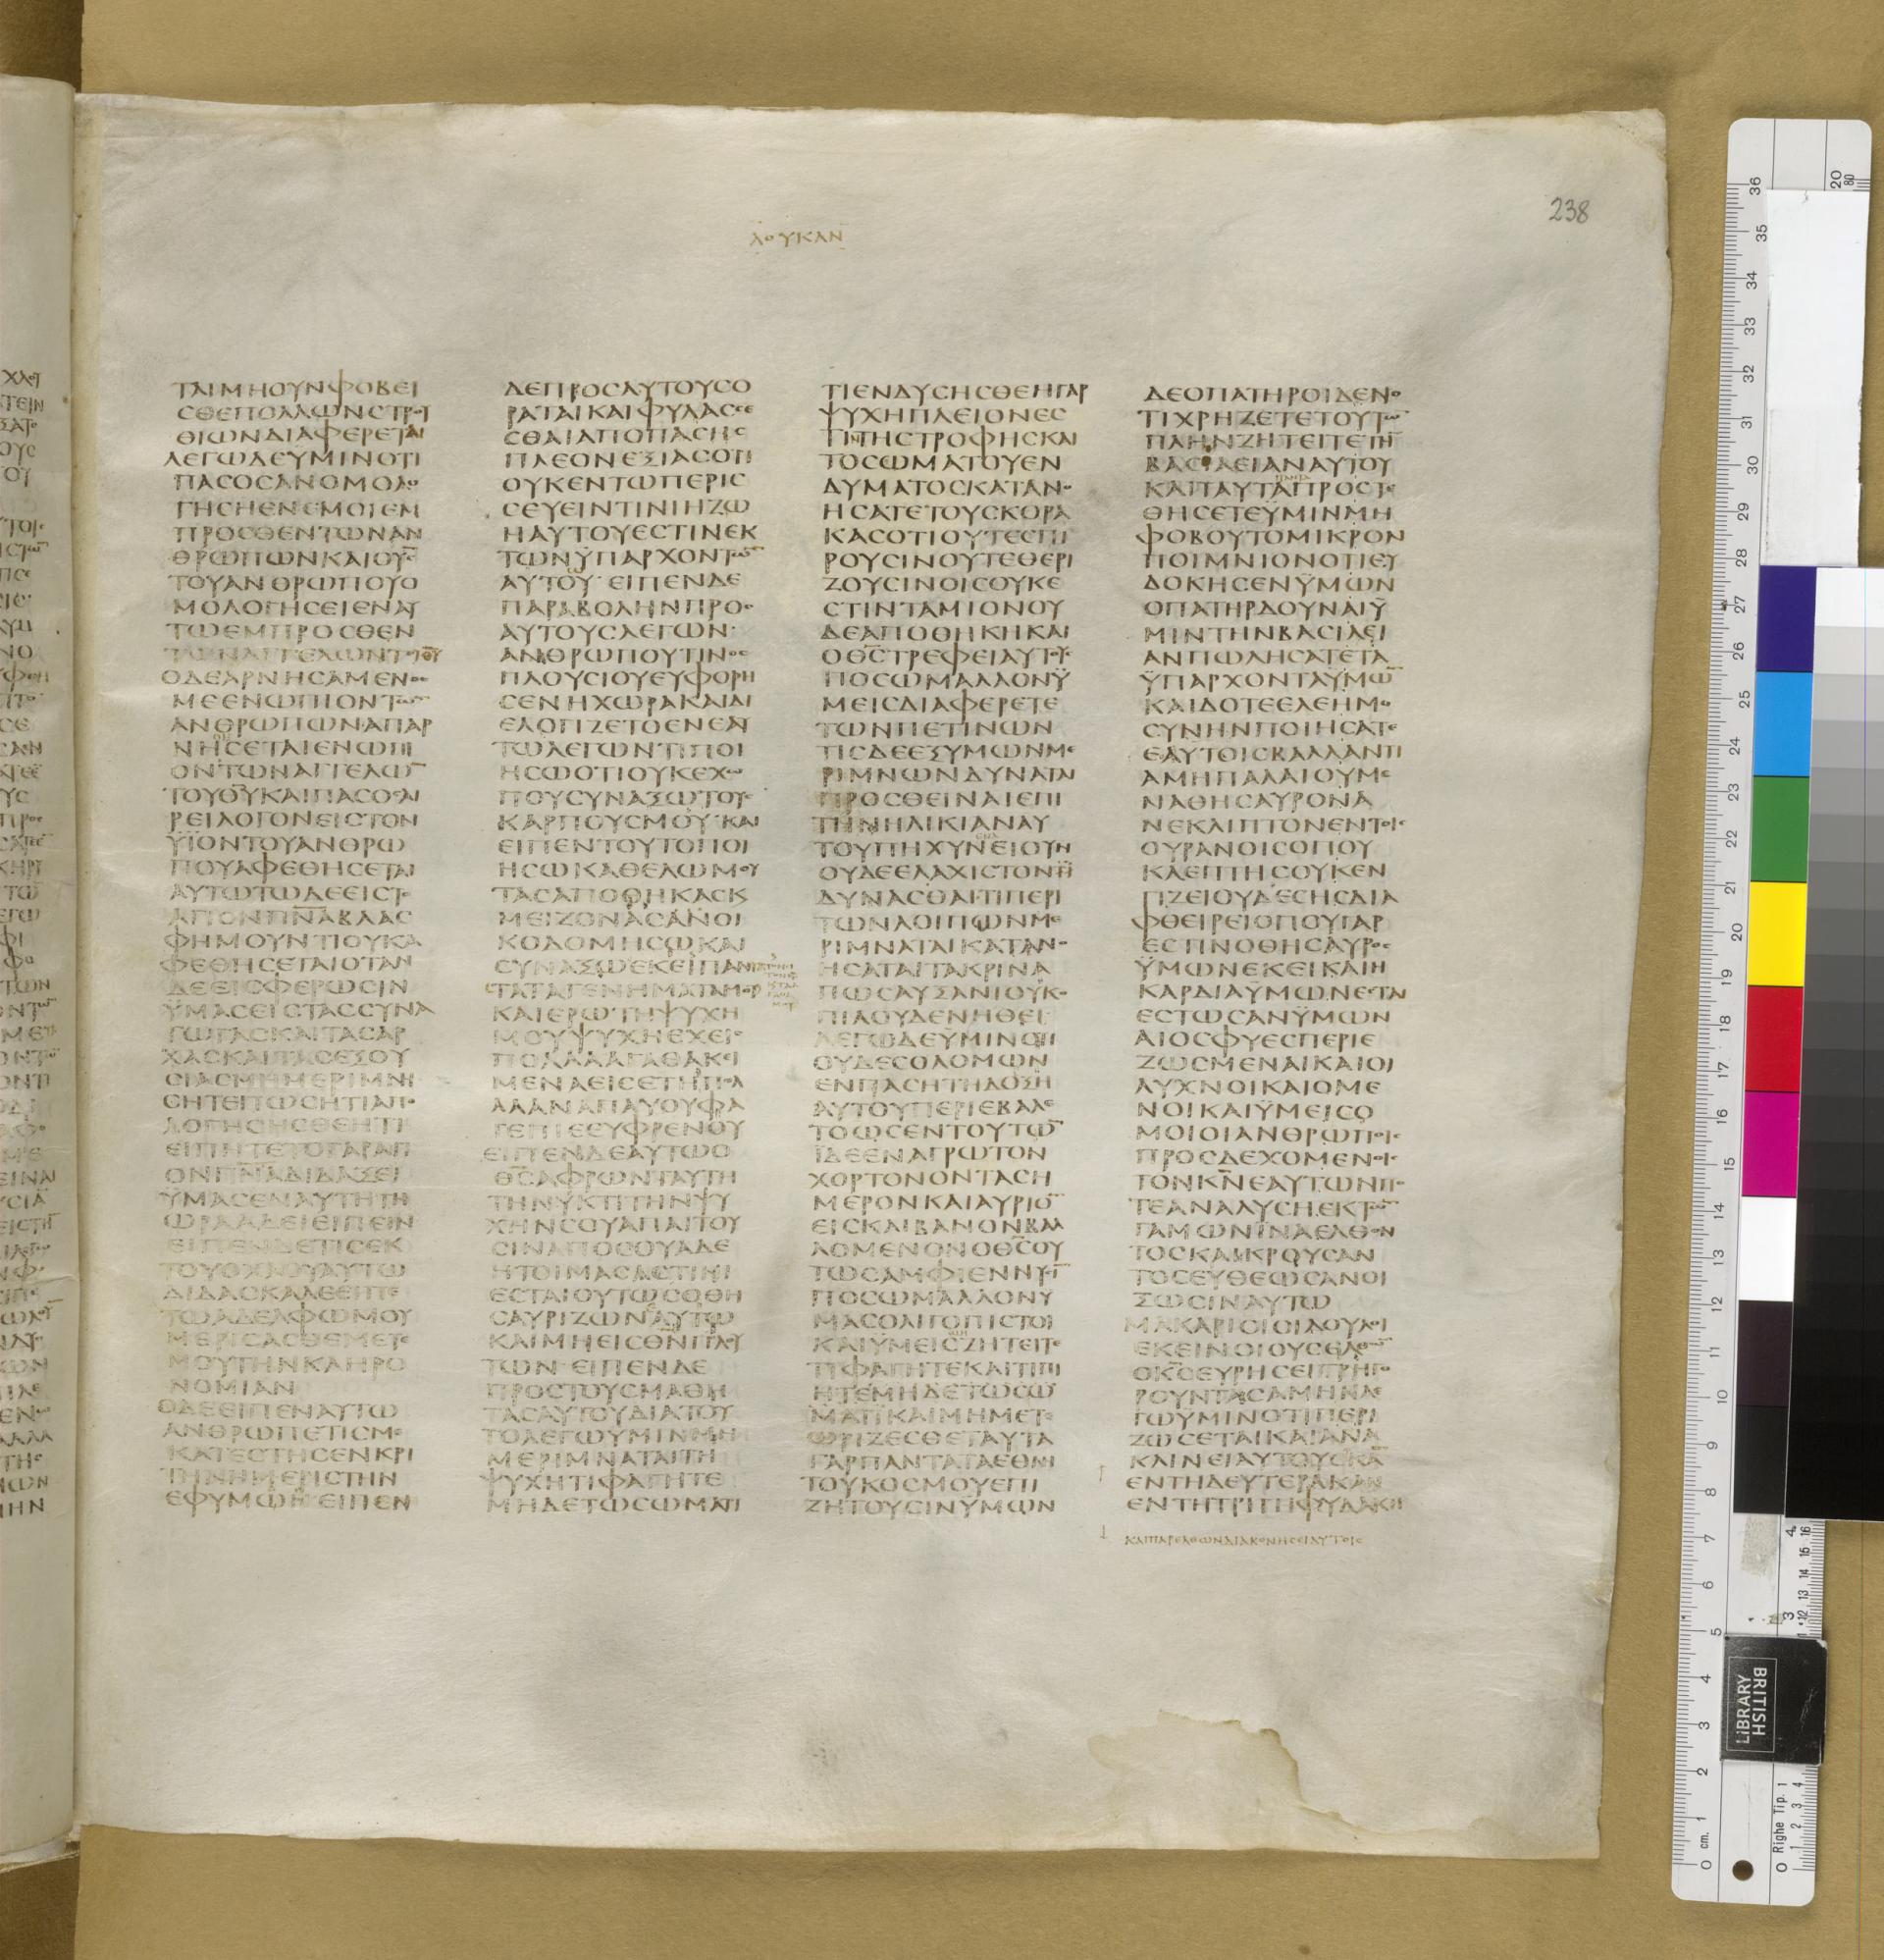 238
ΛΟΥΚΑΝ
ΤΑΙΜΗΟΥΝΦΟΒΕΙ
ϹΘΕΠΟΛΛΩΝϹΤΡΟΥ
ΘΙΩΝΔΙΑΦΕΡΕΤΑΙ
ΛΕΓΩΔΕΥΜΙΝΟΤΙ
ΠΑϹΟϹΑΝΟΜΟΛΟ
ΓΗϹΗΕΝΕΜΟΙΕΜ
ΠΡΟϹΘΕΝΤΩΝΑΝ
ΘΡΩΠΩΝΚΑΙΟΥϹ
ΤΟΥΑΝΘΡΩΠΟΥΟ
ΜΟΛΟΓΗϹΕΙΕΝΑΥ
ΤΩΕΜΠΡΟϹΘΕΝ
ΤΩΝΑΓΓΕΛΩΝΤΟΥΘΥ
ΟΔΕΑΡΝΗϹΑΜΕΝΟϹ
ΜΕΕΝΩΠΙΟΝΤΩ̅
ΑΝΘΡΩΠΩΝΑΠΑΡ
ΝΗϹΕΤΑΙΕΝΩΠΙ
ΟΝΤΩΝΑΓΓΕΛΩ̅
ΤΟΥΘΥΚΑΙΠΑϹΟϹΑΙ
ΡΕΙΛΟΓΟΝΕΙϹΤΟΝ
ΥΪΟΝΤΟΥΑΝΘΡΩ
ΠΟΥΑΦΕΘΗϹΕΤΑΙ
ΑΥΤΩΤΩΔΕΕΙϹΤΟ
ΑΓΙΟΝΠΝ̅ΑΒΛΑϹ
ΦΗΜΟΥΝΤΙΟΥΚΑ
ΦΕΘΗϹΕΤΑΙΟΤΑΝ
ΔΕΕΙϹΦΕΡΩϹΙΝ
ΫΜΑϹΕΙϹΤΑϹϹΥΝΑ
ΓΩΓΑϹΚΑΙΤΑϹΑΡ
ΧΑϹΚΑΙΤΑϹΕΞΟΥ
ϹΙΑϹΜΗΜΕΡΙΜΝΗ
ϹΗΤΕΠΩϹΗΤΙΑΠΟ
ΛΟΓΗϹΗϹΘΕΗΤΙ
ΕΙΠΗΤΕΤΟΓΑΡΑΓΙ
ΟΝΠΝ̅ΑΔΙΔΑΞΕΙ
ΫΜΑϹΕΝΑΥΤΗΤΗ
ΩΡΑΑΔΕΙΕΙΠΕΙΝ
ΕΙΠΕΝΔΕΤΙϹΕΚ
ΤΟΥΟΧΛΟΥΑΥΤΩ
ΔΙΔΑϹΚΑΛΕΕΙΠΕ
ΤΩΑΔΕΛΦΩΜΟΥ
ΜΕΡΙϹΑϹΘΕΜΕΤΕ
ΜΟΥΤΗΝΚΛΗΡΟ
ΝΟΜΙΑΝ
ΟΔΕΕΙΠΕΝΑΥΤΩ
ΑΝΘΡΩΠΕΤΙϹΜΕ
ΚΑΤΕϹΤΗϹΕΝΚΡΙ
ΤΗΝΗΜΕΡΙϹΤΗΝ
ΕΦΥΜΩΝΕΙΠΕΝ
ΔΕΠΡΟϹΑΥΤΟΥϹΟ
ΡΑΤΑΙΚΑΙΦΥΛΑϹϹΕ
ϹΘΑΙΑΠΟΠΑϹΗϹ
ΠΛΕΟΝΕΞΙΑϹΟΤΙ
ΟΥΚΕΝΤΩΠΕΡΙϹ
ϹΕΥΕΙΝΤΙΝΙΗΖΩ
ΗΑΥΤΟΥΕϹΤΙΝΕΚ
ΤΩΝΫΠΑΡΧΟΝΤΩ̅
ΑΥΤΟΥ·ΕΙΠΕΝΔΕ
ΠΑΡΑΒΟΛΗΝΠΡΟϹ
ΑΥΤΟΥϹΛΕΓΩΝ·
ΑΝΘΡΩΠΟΥΤΙΝΟϹ
ΠΛΟΥϹΙΟΥΕΥΦΟΡΗ
ϹΕΝΗΧΩΡΑΚΑΙΔΙ
ΕΛΟΓΙΖΕΤΟΕΝΕΑΥ
ΤΩΛΕΓΩΝΤΙΠΟΙ
ΗϹΩΟΤΙΟΥΚΕΧΩ
ΠΟΥϹΥΝΑΞΩΤΟΥϹ
ΚΑΡΠΟΥϹΜΟΥΚΑΙ
ΕΙΠΕΝΤΟΥΤΟΠΟΙ
ΗϹΩΚΑΘΕΛΩΜΟΥ
ΤΑϹΑΠΟΘΗΚΑϹΚ
ΜΕΙΖΟΝΑϹΑΝΟΙ
ΚΟΔΟΜΗϹΩΚΑΙ
ϹΥΝΑΞΩΕΚΕΙΠΑΝ
ΤΑΤΑΓΕΝΗΜΑΤΑΜΟΥ
ΚΑΙΕΡΩΤΗΨΥΧΗ
ΜΟΥΨΥΧΗΕΧΕΙϹ
ΠΟΛΛΑΑΓΑΘΑΚΙ
ΜΕΝΑΕΙϹΕΤΗΠΟΛ
ΛΑΑΝΑΠΑΥΟΥΦΑ
ΓΕΠΙΕΕΥΦΡΕΝΟΥ
ΕΙΠΕΝΔΕΑΥΤΩΟ
ΘϹ̅ΑΦΡΩΝΤΑΥΤΗ
ΤΗΝΥΚΤΙΤΗΝΨΥ
ΧΗΝϹΟΥΑΠΑΙΤΟΥ
ϹΙΝΑΠΟϹΟΥΑΔΕ
ΗΤΟΙΜΑϹΑϹΤΙΝΙ
ΕϹΤΑΙΟΥΤΩϹΟΘΗ
ϹΑΥΡΙΖΩΝΑΥΤΩ
ΚΑΙΜΗΕΙϹΘΝ̅ΠΛΟΥ
ΤΩΝ·ΕΙΠΕΝΔΕ
ΠΡΟϹΤΟΥϹΜΑΘΗ
ΤΑϹΑΥΤΟΥΔΙΑΤΟΥ
ΤΟΛΕΓΩΥΜΙΝΜΗ
ΜΕΡΙΜΝΑΤΑΙΤΗ
ΨΥΧΗΤΙΦΑΓΗΤΕ
ΜΗΔΕΤΩϹΩΜΑΤΙ
ΤΙΕΝΔΥϹΗϹΘΕΗΓΑΡ
ΨΥΧΗΠΛΕΙΟΝΕϹ
ΤΙΝΤΗϹΤΡΟΦΗϹΚΑΙ
ΤΟϹΩΜΑΤΟΥΕΝ
ΔΥΜΑΤΟϹΚΑΤΑΝΟ
ΗϹΑΤΕΤΟΥϹΚΟΡΑ
ΚΑϹΟΤΙΟΥΤΕϹΠΙ
ΡΟΥϹΙΝΟΥΤΕΘΕΡΙ
ΖΟΥϹΙΝΟΙϹΟΥΚΕ
ϹΤΙΝΤΑΜΙΟΝΟΥ
ΔΕΑΠΟΘΗΚΗΚΑΙ
ΟΘϹ̅ΤΡΕΦΕΙΑΥΤΟΥϹ
ΠΟϹΩΜΑΛΛΟΝΫ
ΜΕΙϹΔΙΑΦΕΡΕΤΕ
ΤΩΝΠΕΤΙΝΩΝ
ΤΙϹΔΕΕΞΥΜΩΝΜΕ
ΡΙΜΝΩΝΔΥΝΑΤΑΙ
ΠΡΟϹΘΕΙΝΑΙΕΠΙ
ΤΗΝΗΛΙΚΙΑΝΑΥ
ΤΟΥΠΗΧΥΝΕΙΟΥΝ
ΟΥΔΕΕΛΑΧΙϹΤΟΝ
ΔΥΝΑϹΘΑΙΤΙΠΕΡΙ
ΤΩΝΛΟΙΠΩΝΜΕ
ΡΙΜΝΑΤΑΙΚΑΤΑΝΟ
ΗϹΑΤΑΙΤΑΚΡΙΝΑ
ΠΩϹΑΥΞΑΝΙΟΥΚΟ
ΠΙΑΟΥΔΕΝΗΘΕΙ
ΛΕΓΩΔΕΫΜΙΝΟΤΙ
ΟΥΔΕϹΟΛΟΜΩΝ
ΕΝΠΑϹΗΤΗΔΟΞΗ
ΑΥΤΟΥΠΕΡΙΕΒΑΛΕ
ΤΟΩϹΕΝΤΟΥΤΩ̅
ΪΔΕΕΝΑΓΡΩΤΟΝ
ΧΟΡΤΟΝΟΝΤΑϹΗ
ΜΕΡΟΝΚΑΙΑΥΡΙΟ̅
ΕΙϹΚΛΙΒΑΝΟΝΒΑΛ
ΛΟΜΕΝΟΝΟΘϹ̅ΟΥ
ΤΩϹΑΜΦΙΕΝΝΥϹΙ̅
ΠΟϹΩΜΑΛΛΟΝΥ
ΜΑϹΟΛΙΓΟΠΙϹΤΟΙ
ΚΑΙΫΜΕΙϹΖΗΤΕΙΤΕ
ΤΙΦΑΓΗΤΕΚΑΙΤΙΠΙ
ΗΤΕΜΗΔΕΤΩϹΩ
ΜΑΤΙΚΑΙΜΗΜΕΤΕ
ΩΡΙΖΕϹΘΕΤΑΥΤΑ
ΓΑΡΠΑΝΤΑΤΑΕΘΝΗ
ΤΟΥΚΟϹΜΟΥΕΠΙ
ΖΗΤΟΥϹΙΝΥΜΩΝ
ΔΕΟΠΑΤΗΡΟΙΔΕΝΟ
ΤΙΧΡΗΖΕΤΕΤΟΥΤΩ̅
ΠΛΗΝΖΗΤΕΙΤΕΤΗ̅
ΒΑϹΙΛΕΙΑΝΑΥΤΟΥ
ΚΑΙΤΑΥΤΑΠΡΟϹΤΕ
ΘΗϹΕΤΕΫΜΙΝΜΗ
ΦΟΒΟΥΤΟΜΙΚΡΟΝ
ΠΟΙΜΝΙΟΝΟΤΙΕΥ
ΔΟΚΗϹΕΝΫΜΩΝ
ΟΠΑΤΗΡΔΟΥΝΑΙΫ
ΜΙΝΤΗΝΒΑϹΙΛΕΙ
ΑΝΠΩΛΗϹΑΤΕΤΑ
ΫΠΑΡΧΟΝΤΑΥΜΩ̅
ΚΑΙΔΟΤΕΕΛΕΗΜΟ
ϹΥΝΗΝΠΟΙΗϹΑΤΕ
ΕΑΥΤΟΙϹΒΑΛΛΑΝΤΙ
ΑΜΗΠΑΛΑΙΟΥΜΕ
ΝΑΘΗϹΑΥΡΟΝΑ
ΝΕΚΛΙΠΤΟΝΕΝΤΟΙϹ
ΟΥΡΑΝΟΙϹΟΠΟΥ
ΚΛΕΠΤΗϹΟΥΚΕΝ
ΓΙΖΕΙΟΥΔΕϹΗϹΔΙΑ
ΦΘΕΙΡΕΙΟΠΟΥΓΑΡ
ΕϹΤΙΝΟΘΗϹΑΥΡΟϹ
ΫΜΩΝΕΚΕΙΚΑΙΗ
ΚΑΡΔΙΑΫΜΩΝΕϹΤΑΙ
ΕϹΤΩϹΑΝΫΜΩΝ
ΑΙΟϹΦΥΕϹΠΕΡΙΕ
ΖΩϹΜΕΝΑΙΚΑΙΟΙ
ΛΥΧΝΟΙΚΑΙΟΜΕ
ΝΟΙΚΑΙΫΜΕΙϹΟ
ΜΟΙΟΙΑΝΘΡΩΠΟΙϹ
ΠΡΟϹΔΕΧΟΜΕΝΟΙϹ
ΤΟΝΚΝ̅ΕΑΥΤΩΝΠΟ
ΤΕΑΝΑΛΥϹΗΕΚΤΩ̅
ΓΑΜΩΝΪΝΑΕΛΘΟΝ
ΤΟϹΚΑΙΚΡΟΥϹΑΝ
ΤΟϹΕΥΘΕΩϹΑΝΟΙ
ΞΩϹΙΝΑΥΤΩ
ΜΑΚΑΡΙΟΙΟΙΔΟΥΛΟΙ
ΕΚΕΙΝΟΙΟΥϹΕΛΘΩ̅
ΟΚϹ̅ΕΥΡΗϹΕΙΓΡΗΓΟ
ΡΟΥΝΤΑϹΑΜΗΝΛΕ
ΓΩΥΜΙΝΟΤΙΠΕΡΙ
ΖΩϹΕΤΑΙΚΑΙΑΝΑ
ΚΛΙΝΕΙΑΥΤΟΥϹΚΑ̅
ΕΝΤΗΔΕΥΤΕΡΑΚΑΝ
ΕΝΤΗΤΡΙΤΗΦΥΛΑΚΗ
ΚΑΙΠΑΡΕΛΘΩΝΔΙΑΚΟΝΗϹΕΙΑΥΤΟΙϹ
BRITISH
LIBRARY